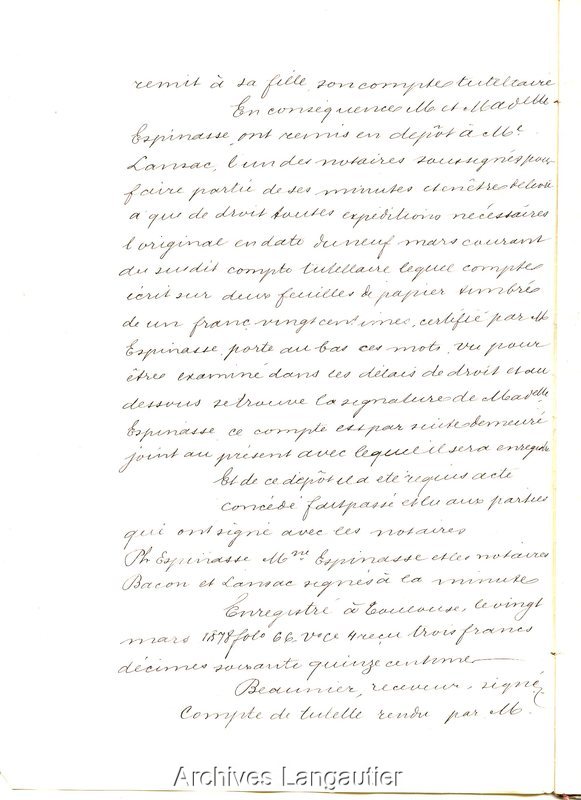 remit à sa fille son compte tutellaire
En conséquence M et Madelle
Espinasse ont remis en dépôt à Me
Lansac, l'un des notaires soussignés pour
faire partie de ses minutes et en être délivré
a que de droit toutes expéditions nécessaires
l'original en date du neuf mars courant
du susdit compte tutellaire lequel compte
écrit sur deux feuilles de papier timbré
de un franc vingt centimes, certifié par M
Espinasse porte au bas ces mots vu pour
être examiné dans les délais de droit et au
dessous se trouve la signature de Madelle
Espinasse ce compte est par suite demeuré
joint au présent avec lequel il sera enregistré
Et de ce dépôt il a été requis acte
concédé fait passé et lu aux parties
qui ont signé avec les notaires
Ph Espinasse Mne Espinasse et les notaires
Bacon et Lansac signés à la minute
Enregistré à Toulouse, le vingt
mars 1878 folo 66 Vo ce 4 reçu trois francs
décimes soixante quinze centimes
Beaumier, receveur, signé
Compte de tutelle rendu par M.
Archives Langautier